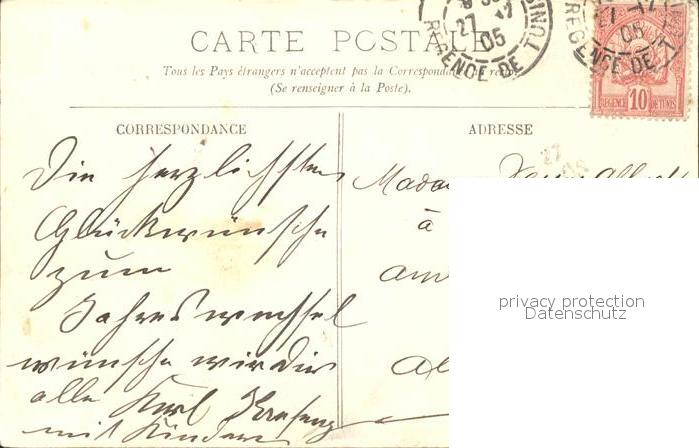 CARTE POSTALE
Tous les Pays étrangers n'acceptent pas la Correspondance au recto
(Se renseigner à la Poste).
27
05
REGENCE DE TUNIS
REGENCE DE
05
REGENCE 10 DE TUNIS
27
05
CORRESPONDANCE
ADRESSE
Die herzlichsten
Glückwünsche
zum
Jahreswechsel
wünschen wir Dir
alle Karl
mit Kindern
à
privacy protection
Datenschutz